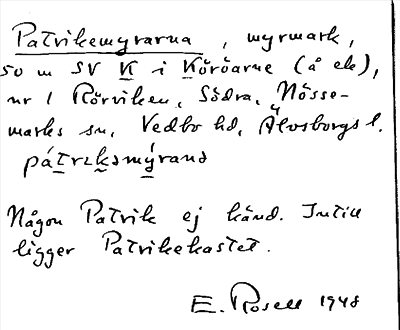 Patrikemyrarna, myrmark,
50 m SV K i Köröarne (å ek),
nr 1 Rörviken, Södra, Nösse-
marks sn, Vedbo hd, Älvsborgs l.
pátrıksmýrana
Någon Patrik ej känd. Intill
ligger Patrikekastet.
E. Rosell 1948